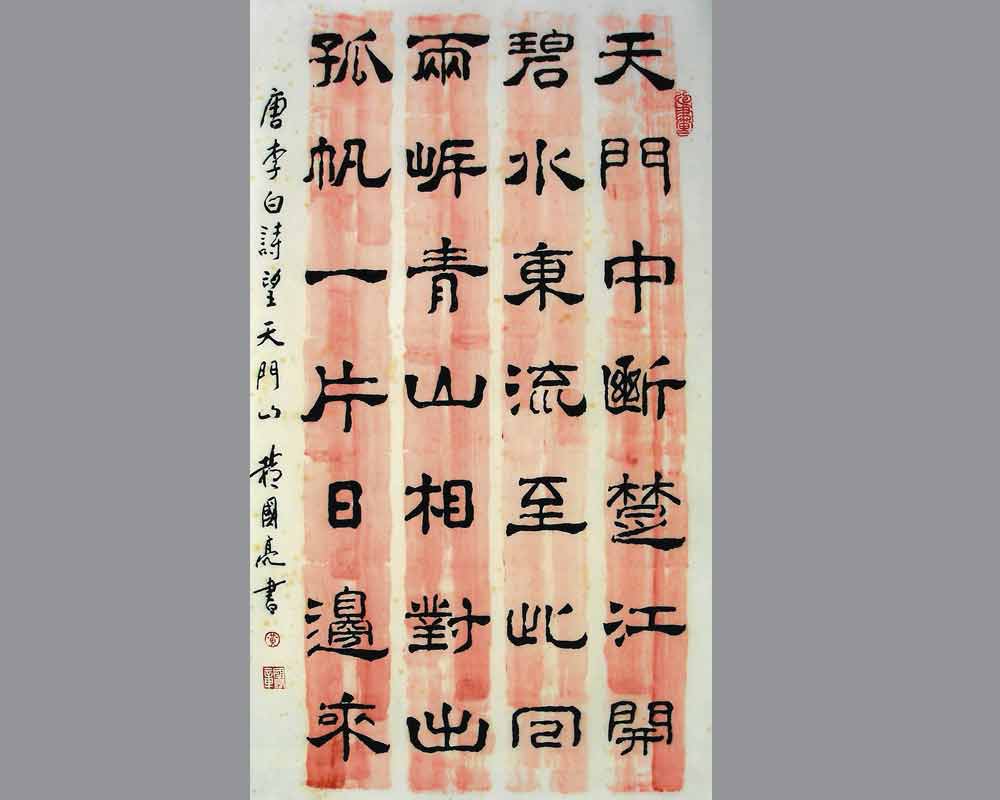 天門中斷楚江開
碧水東流至此回
兩岸青山相對出
孤帆一片日邊來
唐李白詩望天門山 國亮書